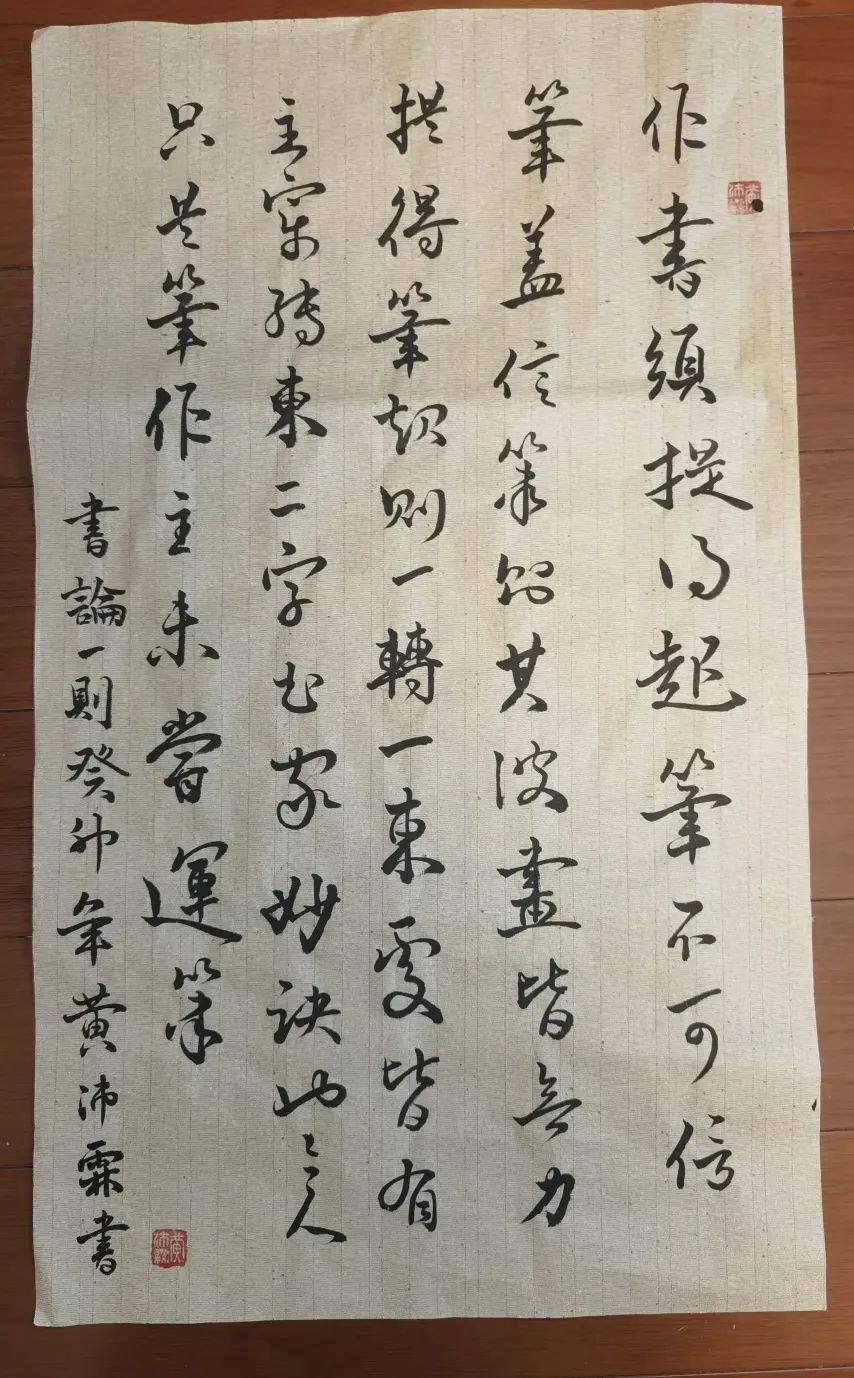 作書須提得起筆不可信
筆蓋信筆則其波畫皆無力
提得筆起則一轉一束處皆有
主宰轉束二字書家妙訣也今人
只是筆作主未嘗運筆
書論一則癸卯年黄沛霖書